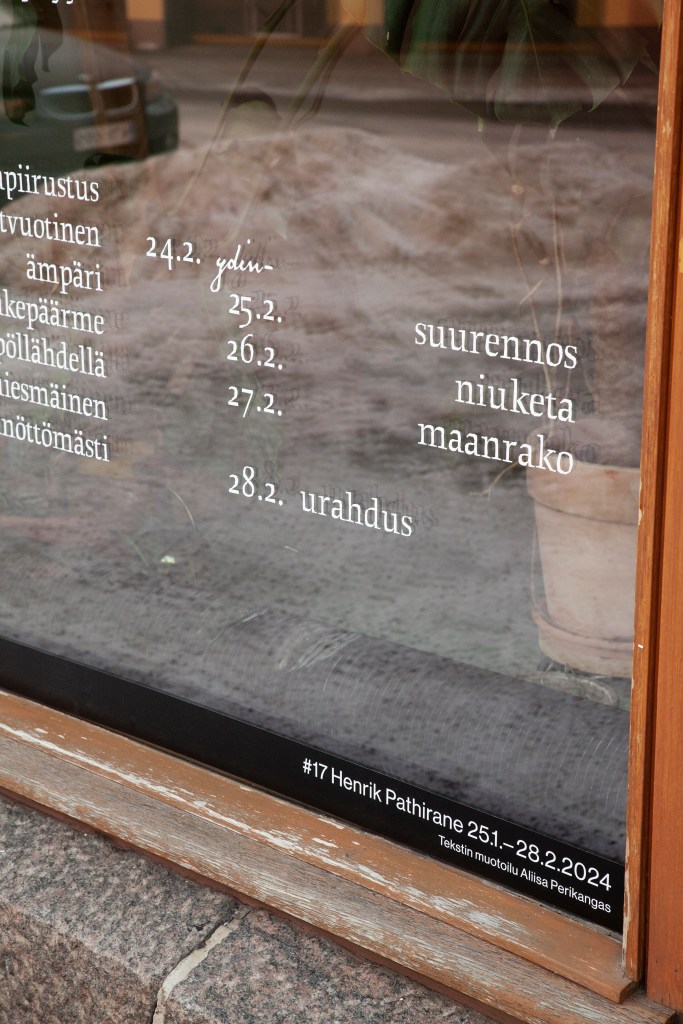 piirustus
tvuotinen
ämpäri
kepäärme
pöllähdellä
iesmäinen
nöttömästi
24.2. ydin-
25.2.
26.2.
27.2.
28.2. urahdus
suurennos
niuketa
maanrako
#17 Henrik Pathirane 25.1.–28.2.2024
Tekstin muotoilu Aliisa Perikangas